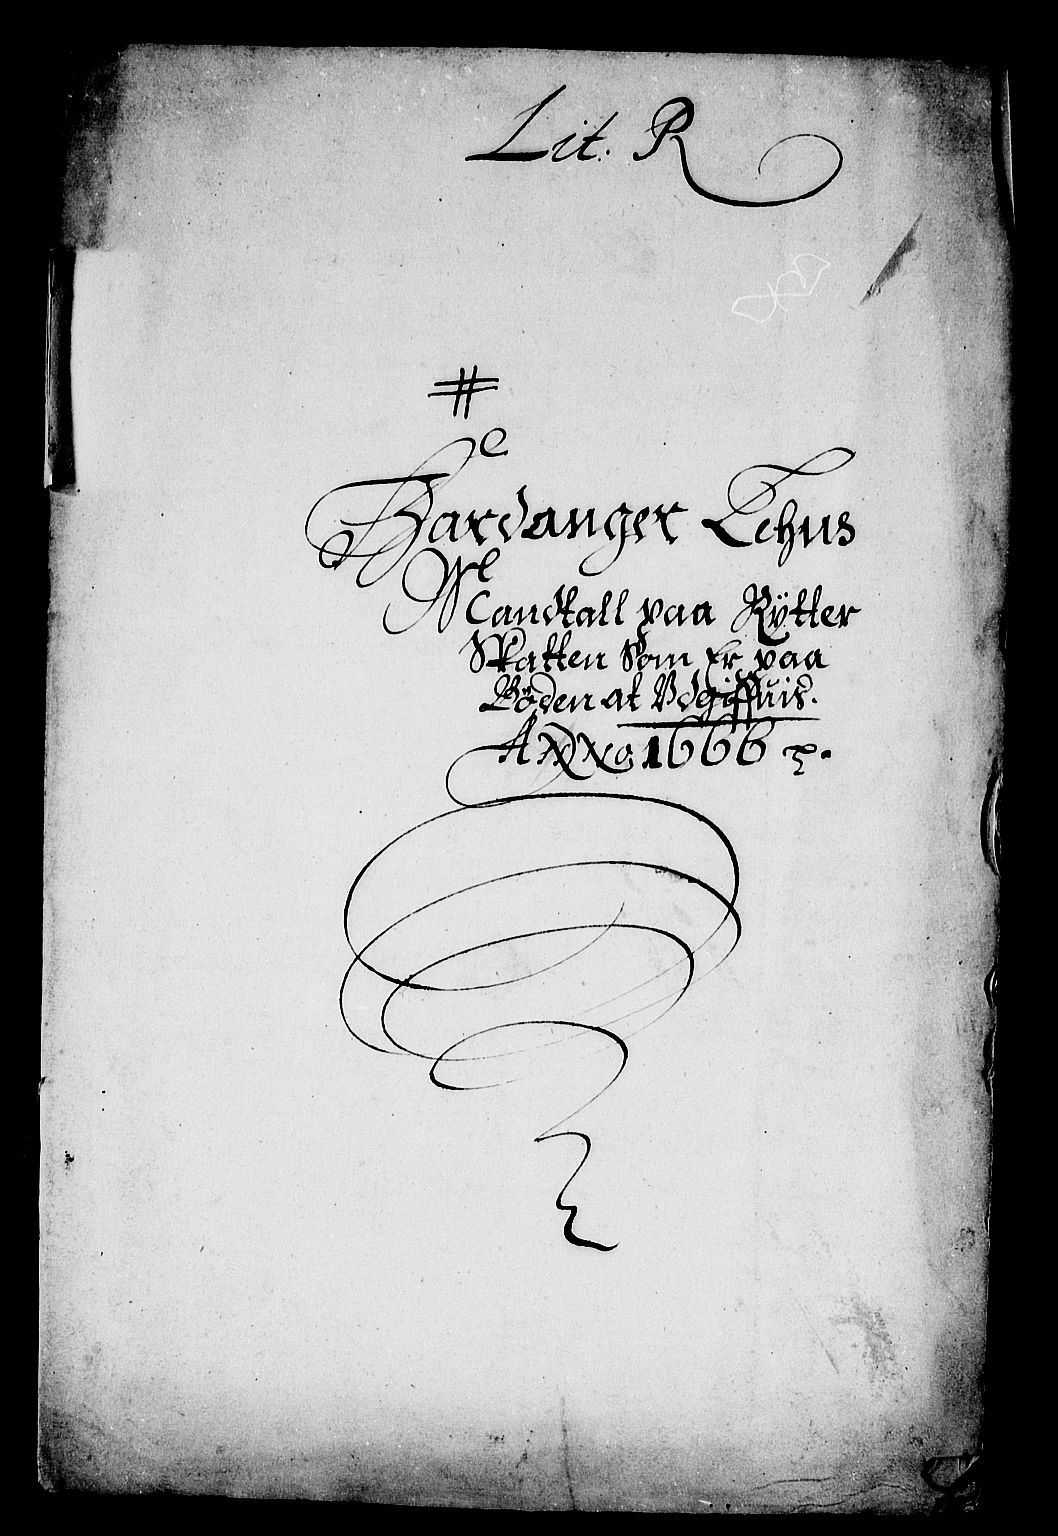 Lit. R
#
Hardanger Lehns
Mandtall paa Rÿtter
Skatten Som Er paa
Böden at Vdgiffuis.
Anno 1666